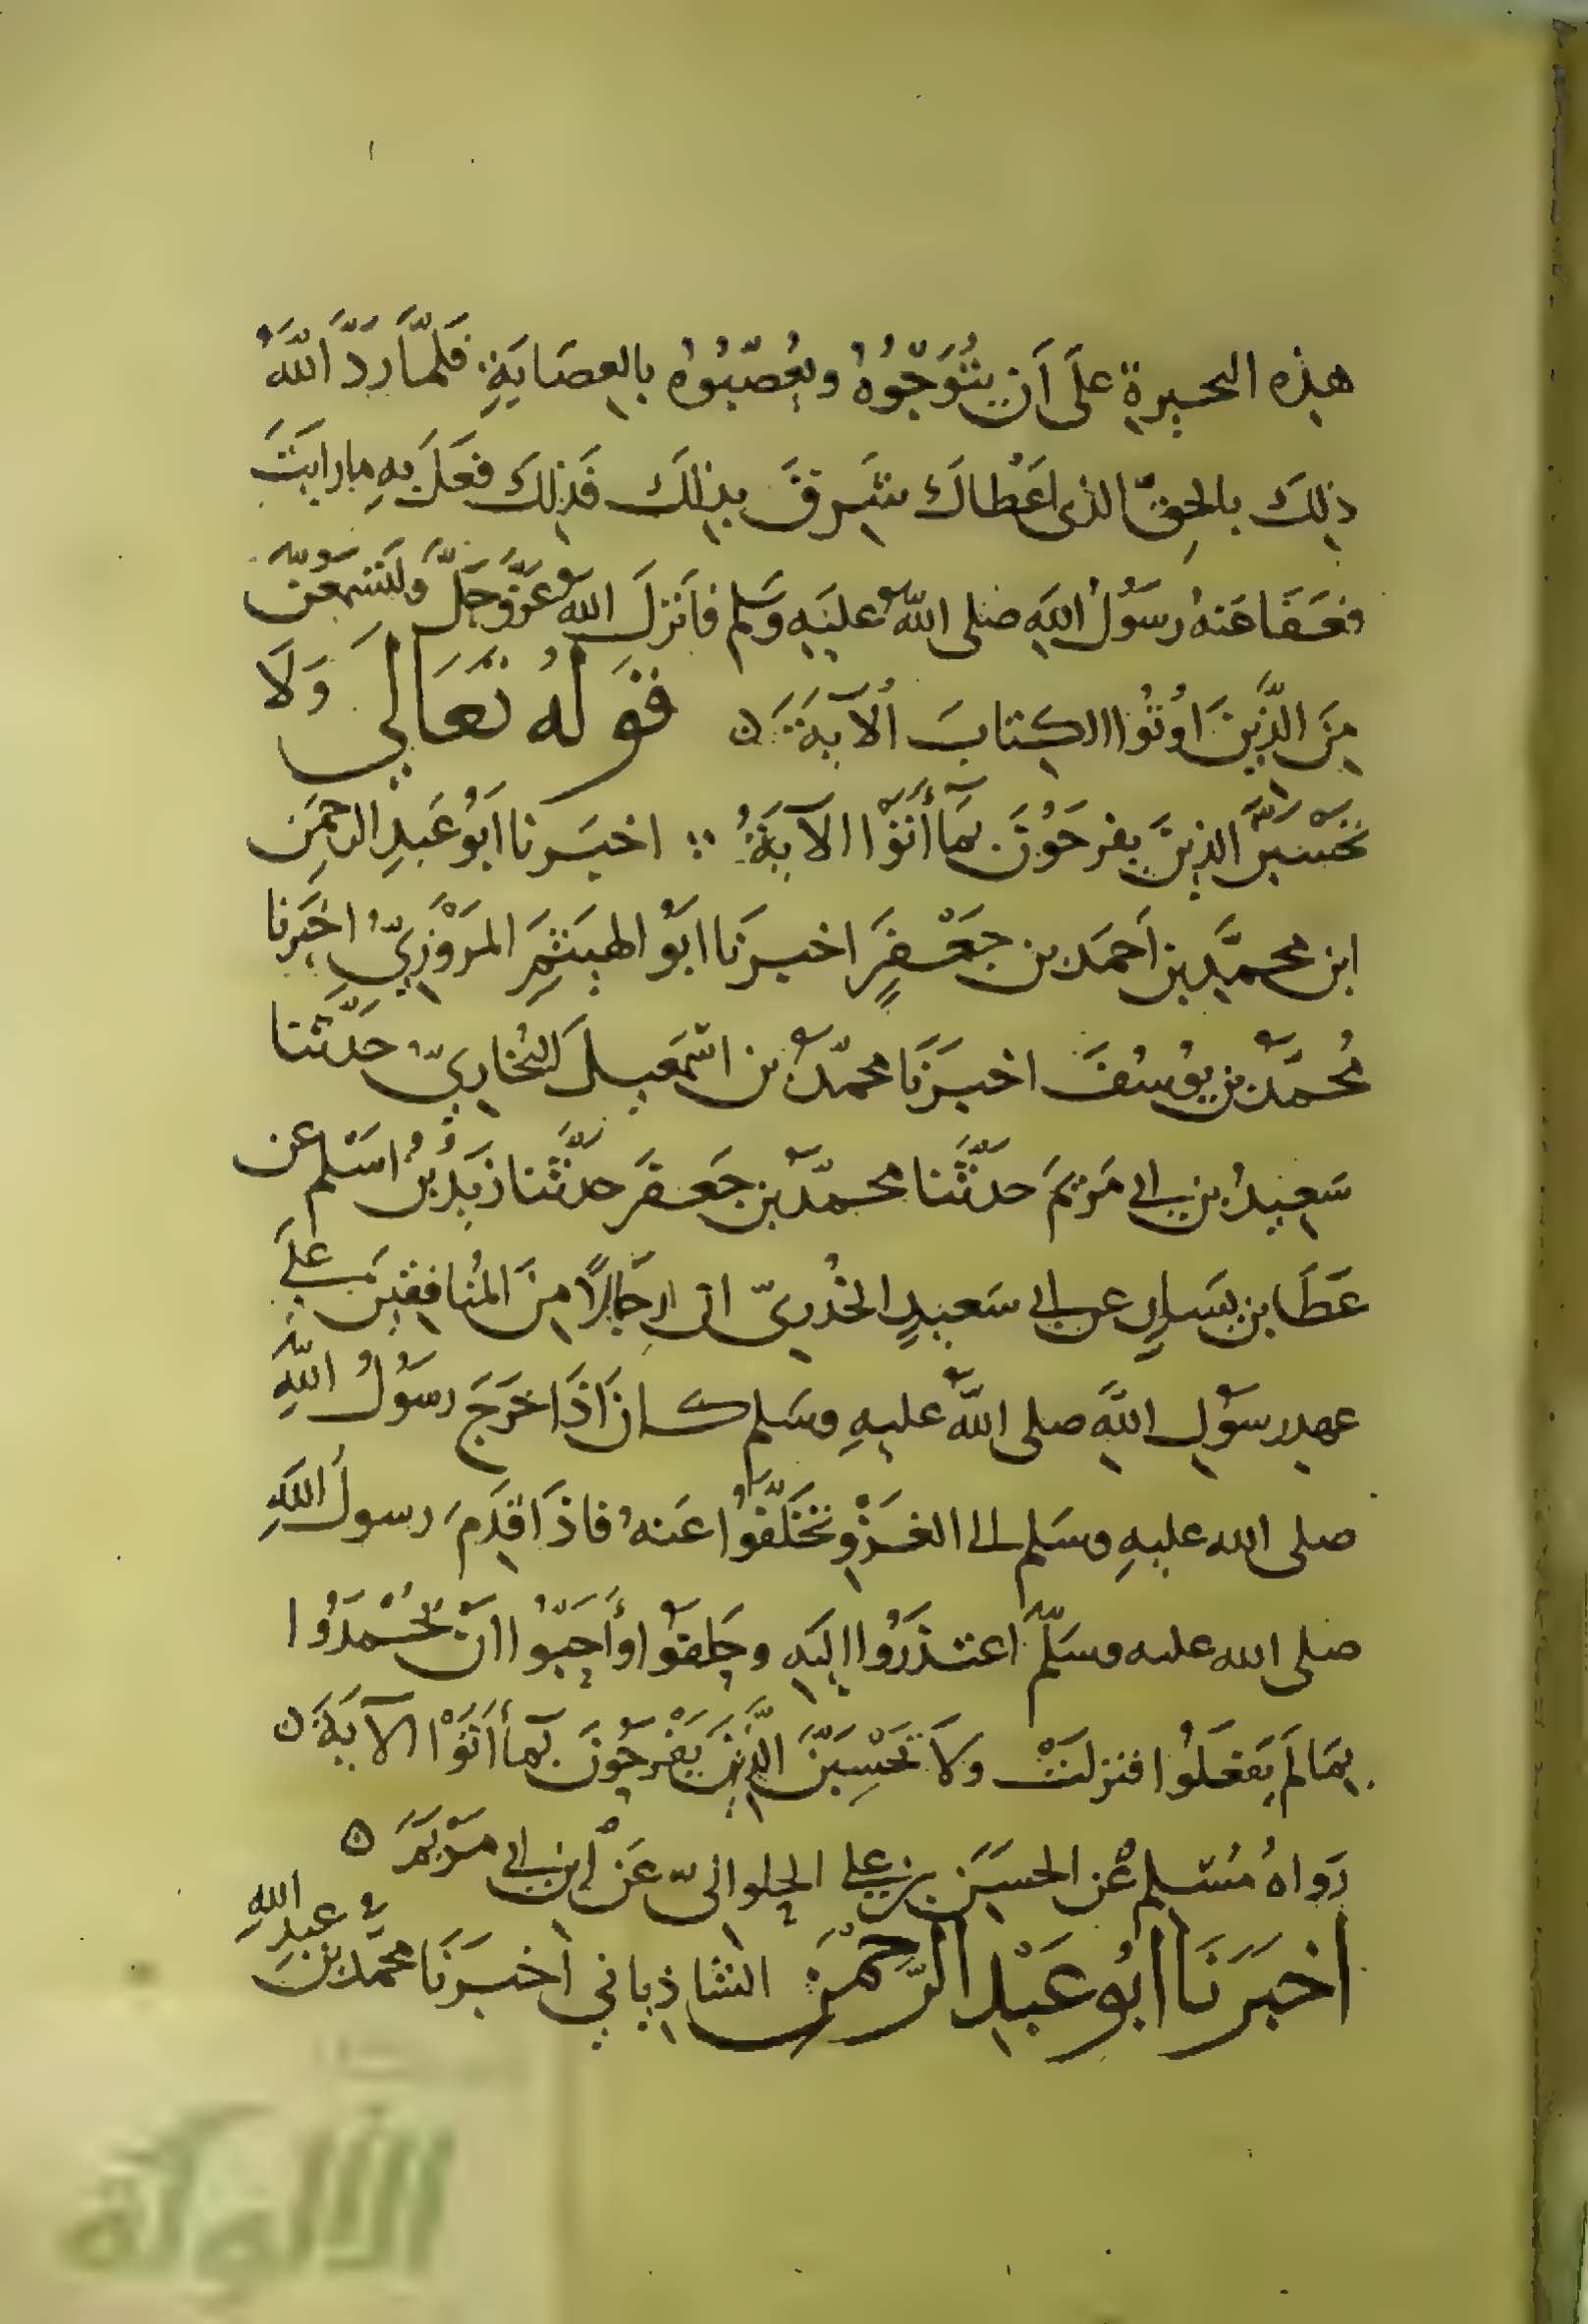 هذه البحيرة عَلَى اَن يُتَوِّجُوهُ ويُعَصِّبُوهُ بالعِصَابَةِ فَلَمَّا رَدَّ اللَّهُ
ذلِكَ بالحقّ الذى اَعْطاكَ شَرِقَ بذلكَ فَذلِكَ فعَلَ بِهِ ما رايتَ
فعَفَا عَنهُ رسَوُلُ اللَّهِ صلى اللَّه عليَهِ وَسَلم فاَنزلَ اللَّه عَزَّ وَجَلَّ ولتَسْمَعُنَّ
مِنَ الَّذِينَ اوُتُوا الكِتابَ الآيةَ ٥ قَولُهُ تَعَالَى وَلَا
تَحْسَبَنَّ الذينَ يفرَحَوُنَ بمَا أَتَوْا الآيَةَ ∴ اخبَرنا اَبوُ عَبدِ الرحمَن
ابن محمَّدِ بن اَحمَدَ بن جَعْفَرٍ اخبرَنَا ابَوُ الهيَثَمِ المَرْوَزِيُّ اخبَرنا
مُحمَّدُ بن يوُسُفَ اخبَرَنَا محمّدُ بن اسْمَعِيلَ البُخاريُّ حَدَّثنا
سَعِيدُ بن ابي مَريَمَ حدثَّنا محمّدُ بن جَعفرَ حدثَّنا زَيدُ بنُ اسَلم عن
عَطَا بن يَسَارٍ عن ابي سَعيدٍ الخُدريّ ان رِجَالًا مِنَ المُنافِقِينَ عَلَى
عهدِ رسوُلِ اللَّهِ صلى اللَّه عليهِ وسَلم كان اذَا خَرَجَ رسَوُلُ اللَّهِ
صلى الله عليهِ وسَلم الى الغَزْوِ تَخَلَّفُوْا عَنهُ فاذَا قَدِمَ رسولُ اللَّهِ
صلى الله عليه وسَلَّم اعتذَرَوُا اليَهِ وحَلَفوُا وأَحَبّوُا انَ يُحْمَدُوا
بِمَا لَم يَفعَلُوا فنزلتْ ولاَ تَحْسِبَنَّ الَّذِينَ يَفْرَحُوَن بمَا أَتَوْا الآيَةَ ٥
رَواهُ مُسْلم عَن الحسَن بن علي الحلوانىّ عَنْ اِبن ابي مَرْيَمَ ٥
اَخبَرَنَا اَبُو عَبْدِ الرَّحْمَنِ الشاذياني اَخبَرَنَا محمَّد بن عبدِ اللَّهِ
الألوكة